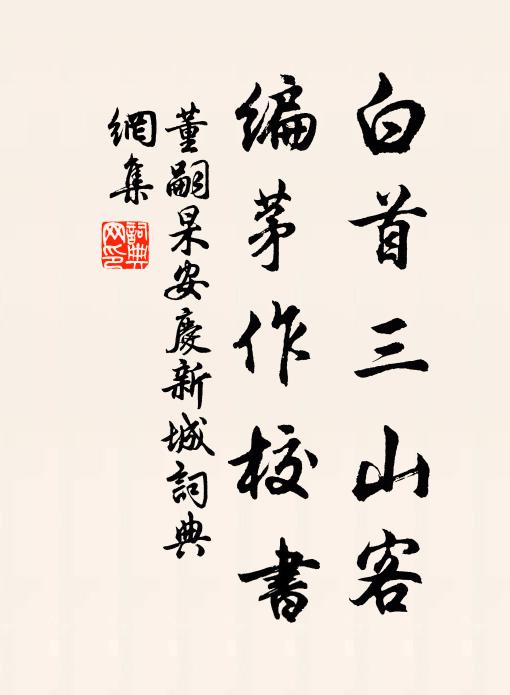 白首三山客
編茅作校書
董嗣杲安慶新城詞典
網集
詞典
网印